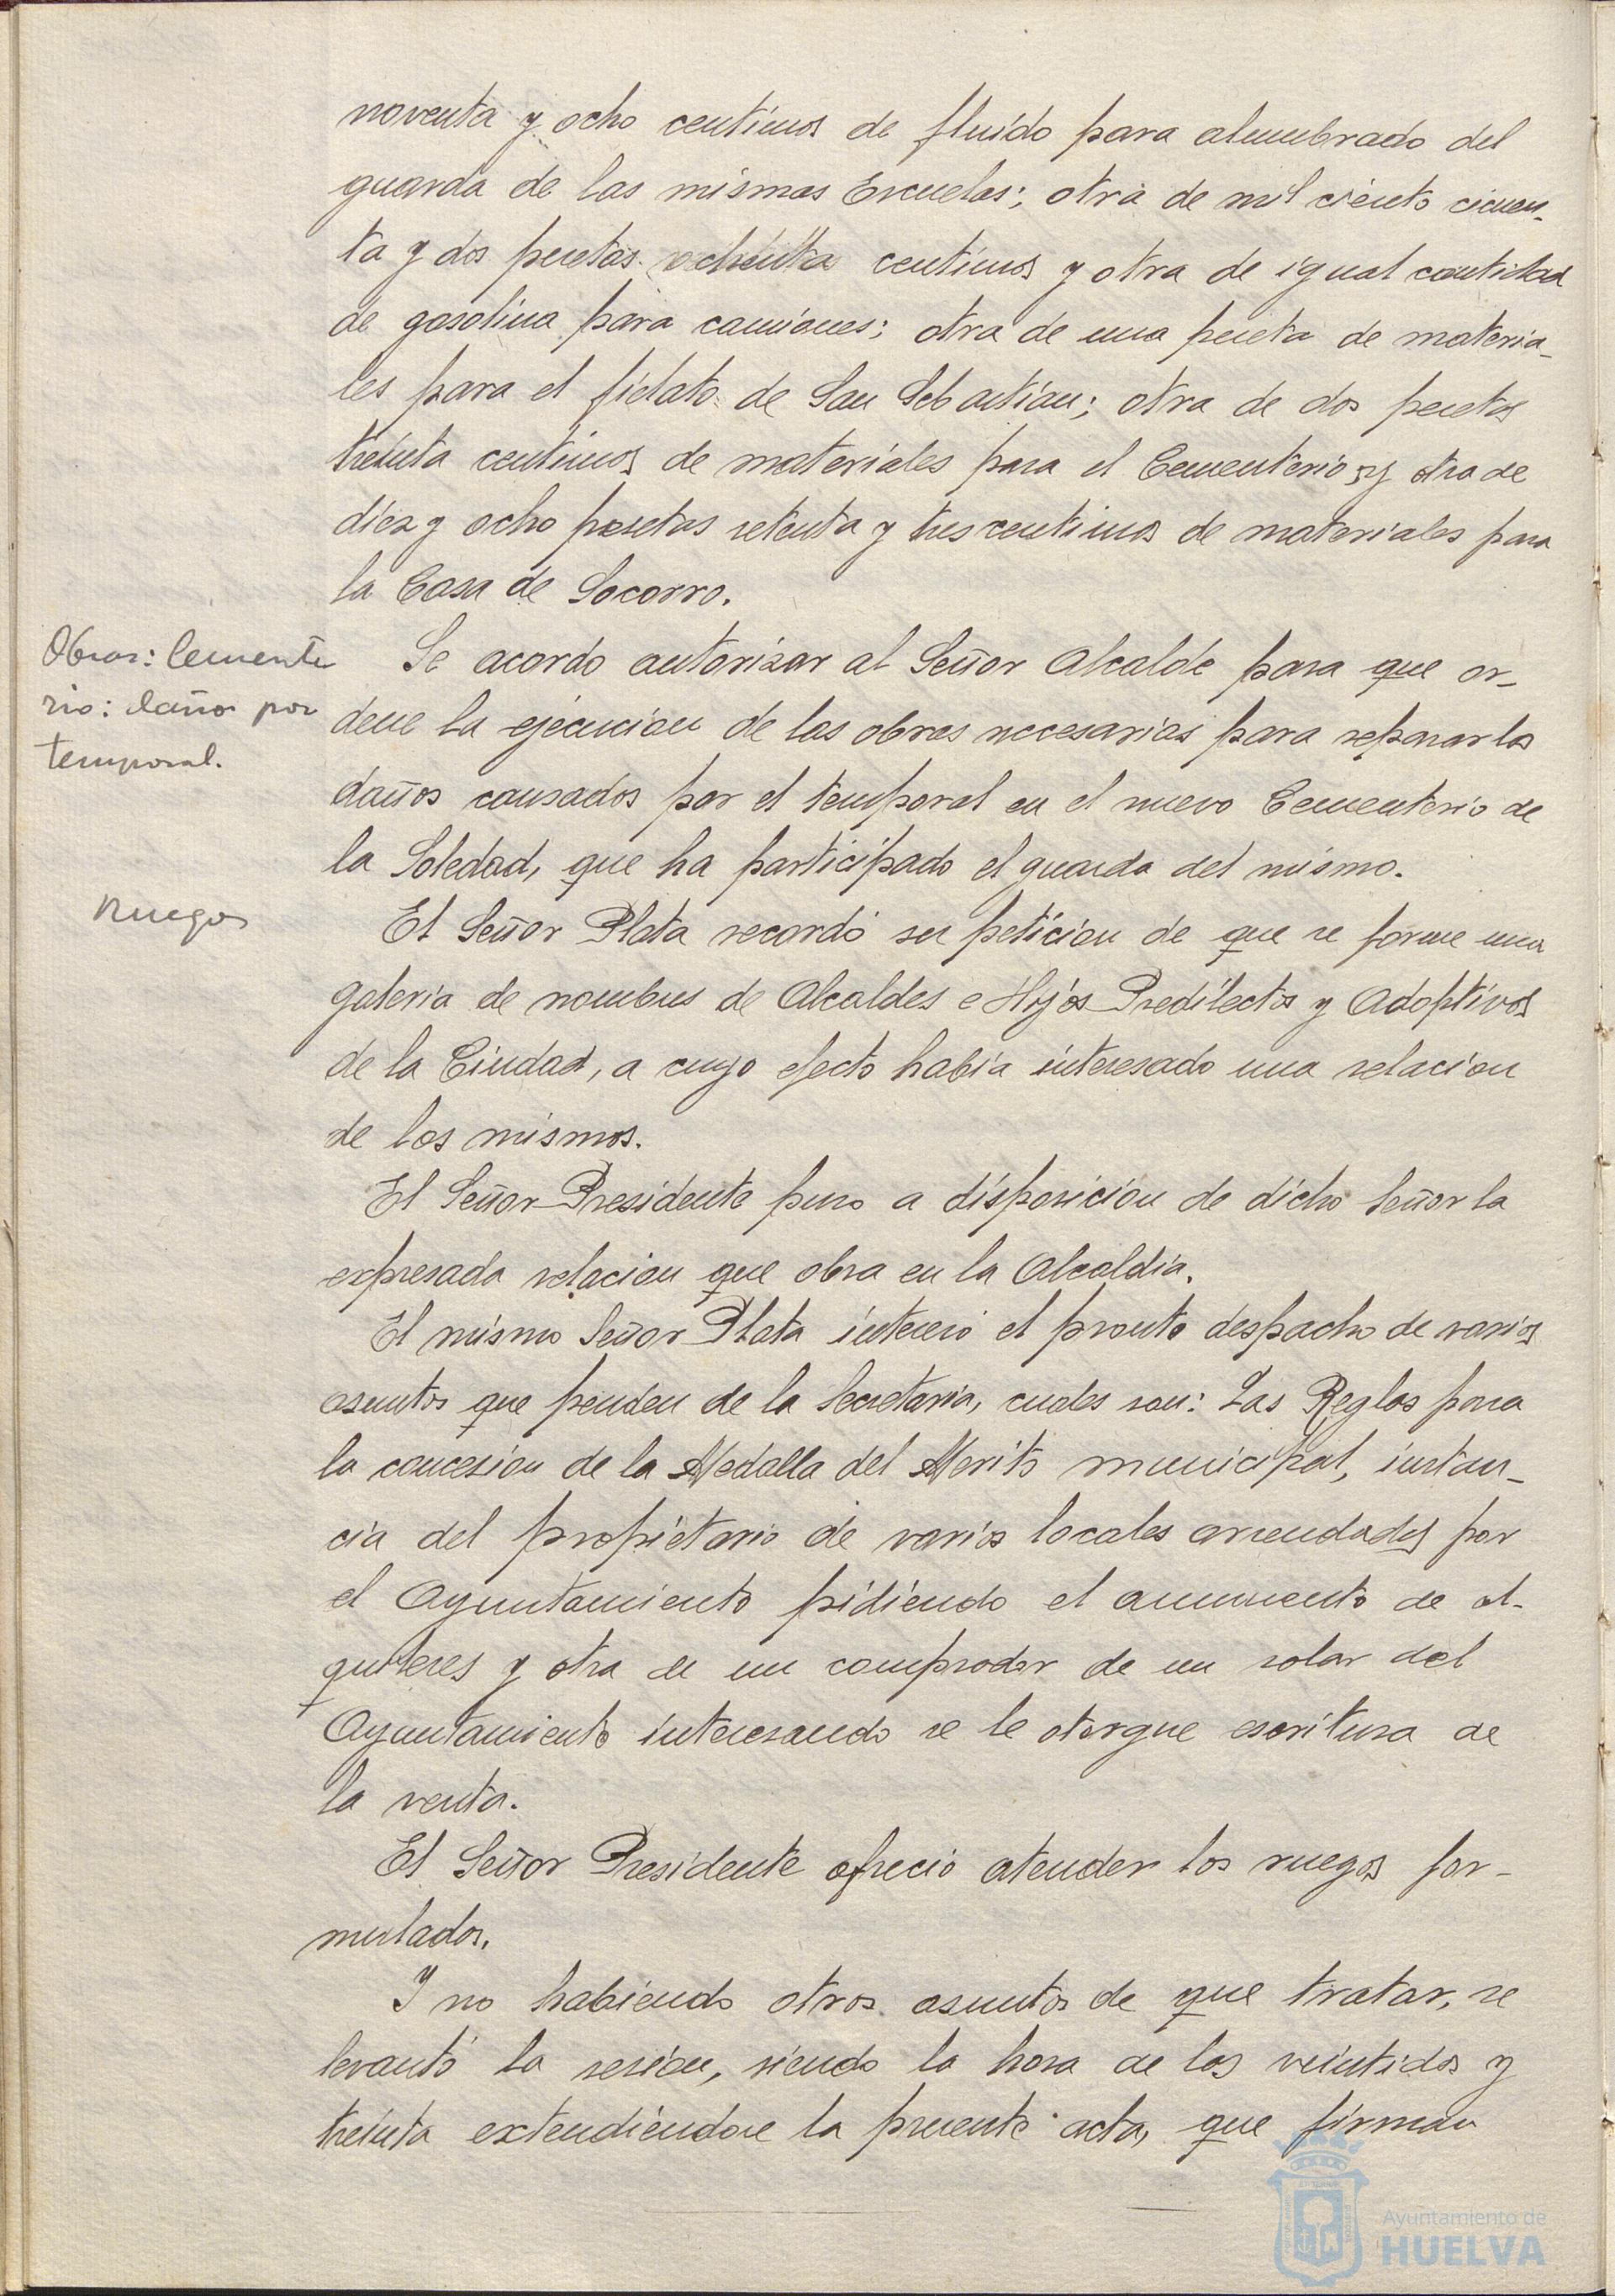 noventa y ocho centimos de fluido para alumbrado del
guarda de las mismas Escuelas; otra de mil ciento cicuen-
ta y dos pesetas ochenta centimos y otra de igual cantidad
de gasolina para camiones; otra de una peseta de materia-
les para el fielato de San Sebastian; otra de dos pesetas
treinta centimos de materiales para el Cementerio, y otra de
diez y ocho pesetas setenta y tres centimos de materiales para
la Casa de Socorro.
Obras: Cemente
rio: daños por
temporal.
Se acordo autorizar al Señor Alcalde para que or-
dene la ejecucion de las obras necesarias para reparar los
daños causados por el temporal en el nuevo Cementerio de
la Soledad, que ha participado el guarda del mismo.
Ruegos
El Señor Plata recordó su petición de que se forme una
galeria de nombres de Alcaldes e Hijos Predilectos y Adoptivos
de la Ciudad, a cuyo efecto habia interesado una relacion
de los mismos.
El Señor Presidente puso a disposicion de dicho Señor la
expresada relacion que obra en la Alcaldia.
El mismo Señor Plata interesó el pronto despacho de varios
asuntos que penden de la Secretaria, cuales son: Las Reglas para
la concesion de la Medalla del Merito municipal, instan-
cia del propietario de varios locales arrendados por
el Ayuntamiento pidiendo el aumento de al-
quileres y otra de un comprador de un solar del
Ayuntamiento interesando se le otorgue escritura de
la venta.
El Señor Presidente ofreció atender los ruegos for-
mulados.
Y no habiendo otros asuntos de que tratar, se
levantó la sesion, siendo la hora de las veintidos y
treinta extendiendose la presente acta, que firman
Ayuntamiento de
HUELVA